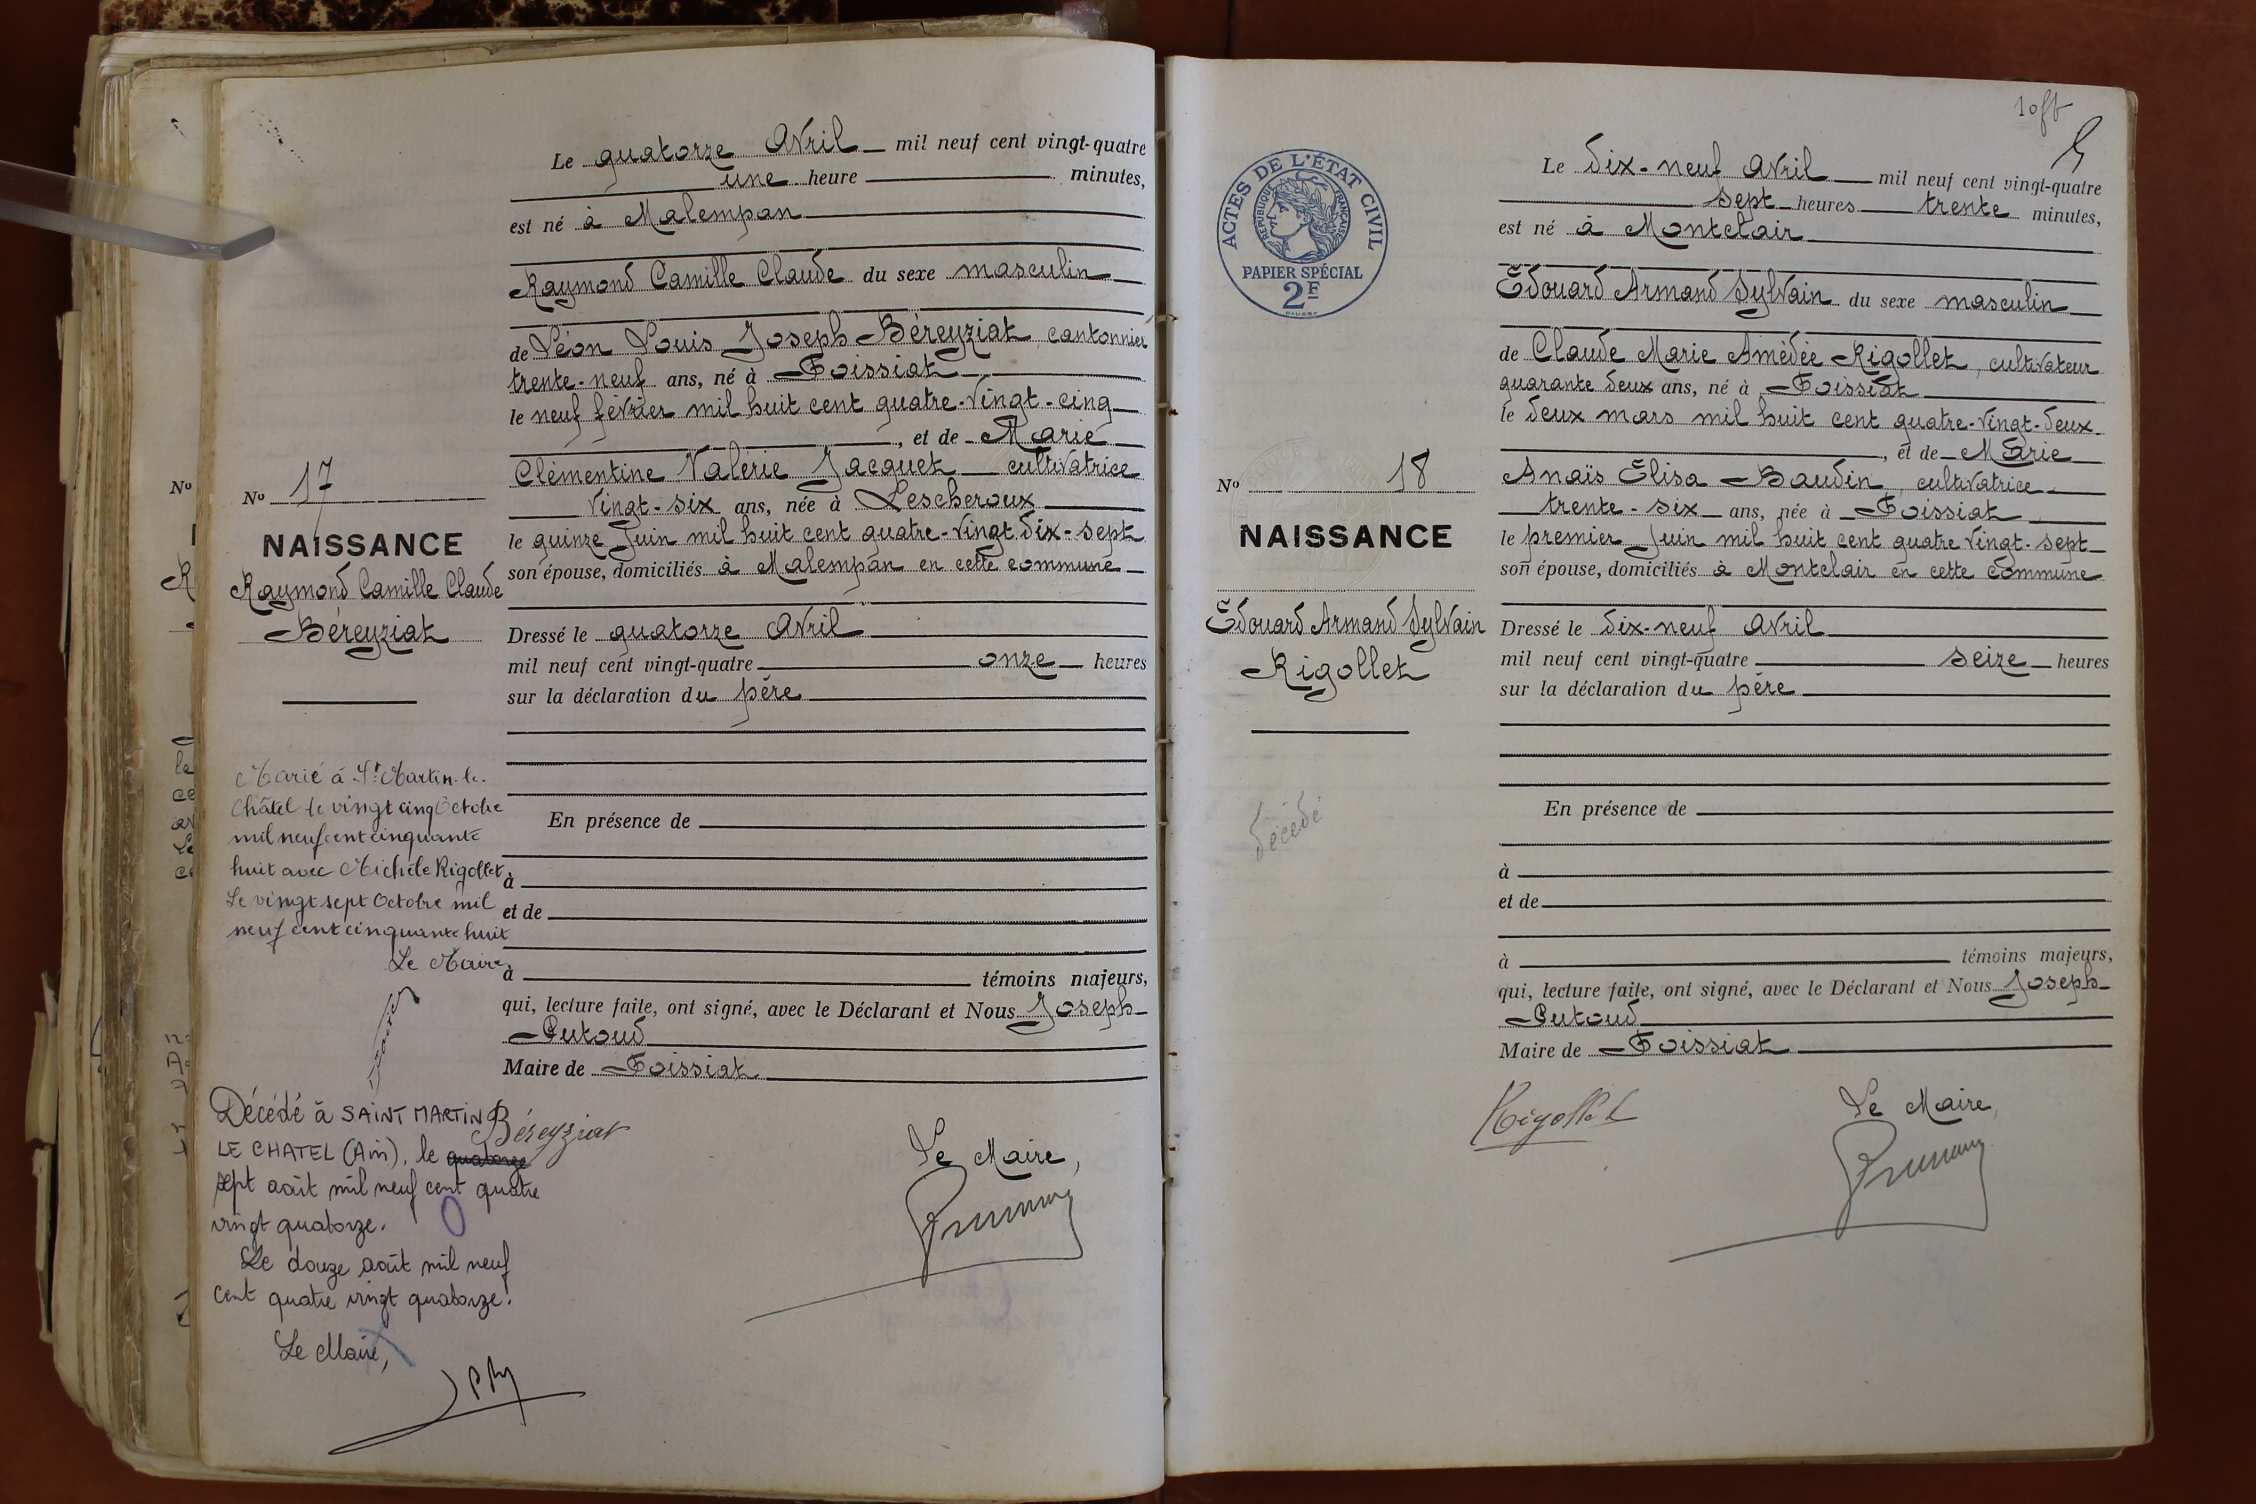 Le quatorze Avril mil neuf cent vingt-quatre
une heure minutes,
est né à Malempan
Raymond Camille Claude du sexe masculin
de Léon Louis Joseph Béreyziat, cantonnier
trente-neuf ans, né à Foissiat
le neuf février mil huit cent quatre-vingt-cinq
, et de Marie
Clémentine Valérie Jacquet cultivatrice
vingt-six ans, née à Lescheroux
le quinze Juin mil huit cent quatre-vingt dix-sept
son épouse, domiciliés à Malempan en cette commune
Dressé le quatorze Avril
mil neuf cent vingt-quatre onze heures
sur la déclaration du père
En présence de
à
et de
à témoins majeurs,
qui, lecture faite, ont signé, avec le Déclarant et Nous Joseph
Putoud
Maire de Foissiat
Béreyziat
Le Maire,
No
No 17
NAISSANCE
Raymond Camille Claude
Béreyziat
Marié à St Martin-le-
Châtel le vingt cinq Octobre
mil neuf cent cinquante
huit avec Michèle Rigollet
Le vingt sept Octobre mil
neuf cent cinquante huit
Le Maire,
Décédé à SAINT MARTIN
LE CHATEL (Ain), le quatorze
sept août mil neuf cent quatre
vingt quatorze.
Le douze août mil neuf
cent quatre vingt quatorze.
Le Maire,
ACTES DE L'ÉTAT CIVIL
RÉPUBLIQUE FRANÇAISE
PAPIER SPÉCIAL
2F
Le dix-neuf Avril mil neuf cent vingt-quatre
sept heures trente minutes,
est né à Montclair
Edouard Armand Sylvain du sexe masculin
de Claude Marie Amédée Rigollet, cultivateur
quarante deux ans, né à Foissiat
le deux mars mil huit cent quatre-vingt-deux
, et de Marie
Anaïs Elisa Baudin, cultivatrice
trente-six ans, née à Foissiat
le premier Juin mil huit cent quatre vingt-sept
son épouse, domiciliés à Montclair en cette commune
Dressé le dix-neuf Avril
mil neuf cent vingt-quatre seize heures
sur la déclaration du père
En présence de
à
et de
à témoins majeurs,
qui, lecture faite, ont signé, avec le Déclarant et Nous Joseph
Putoud
Maire de Foissiat
Rigollet
Le Maire,
No 18
NAISSANCE
Edouard Armand Sylvain
Rigollet
décédé